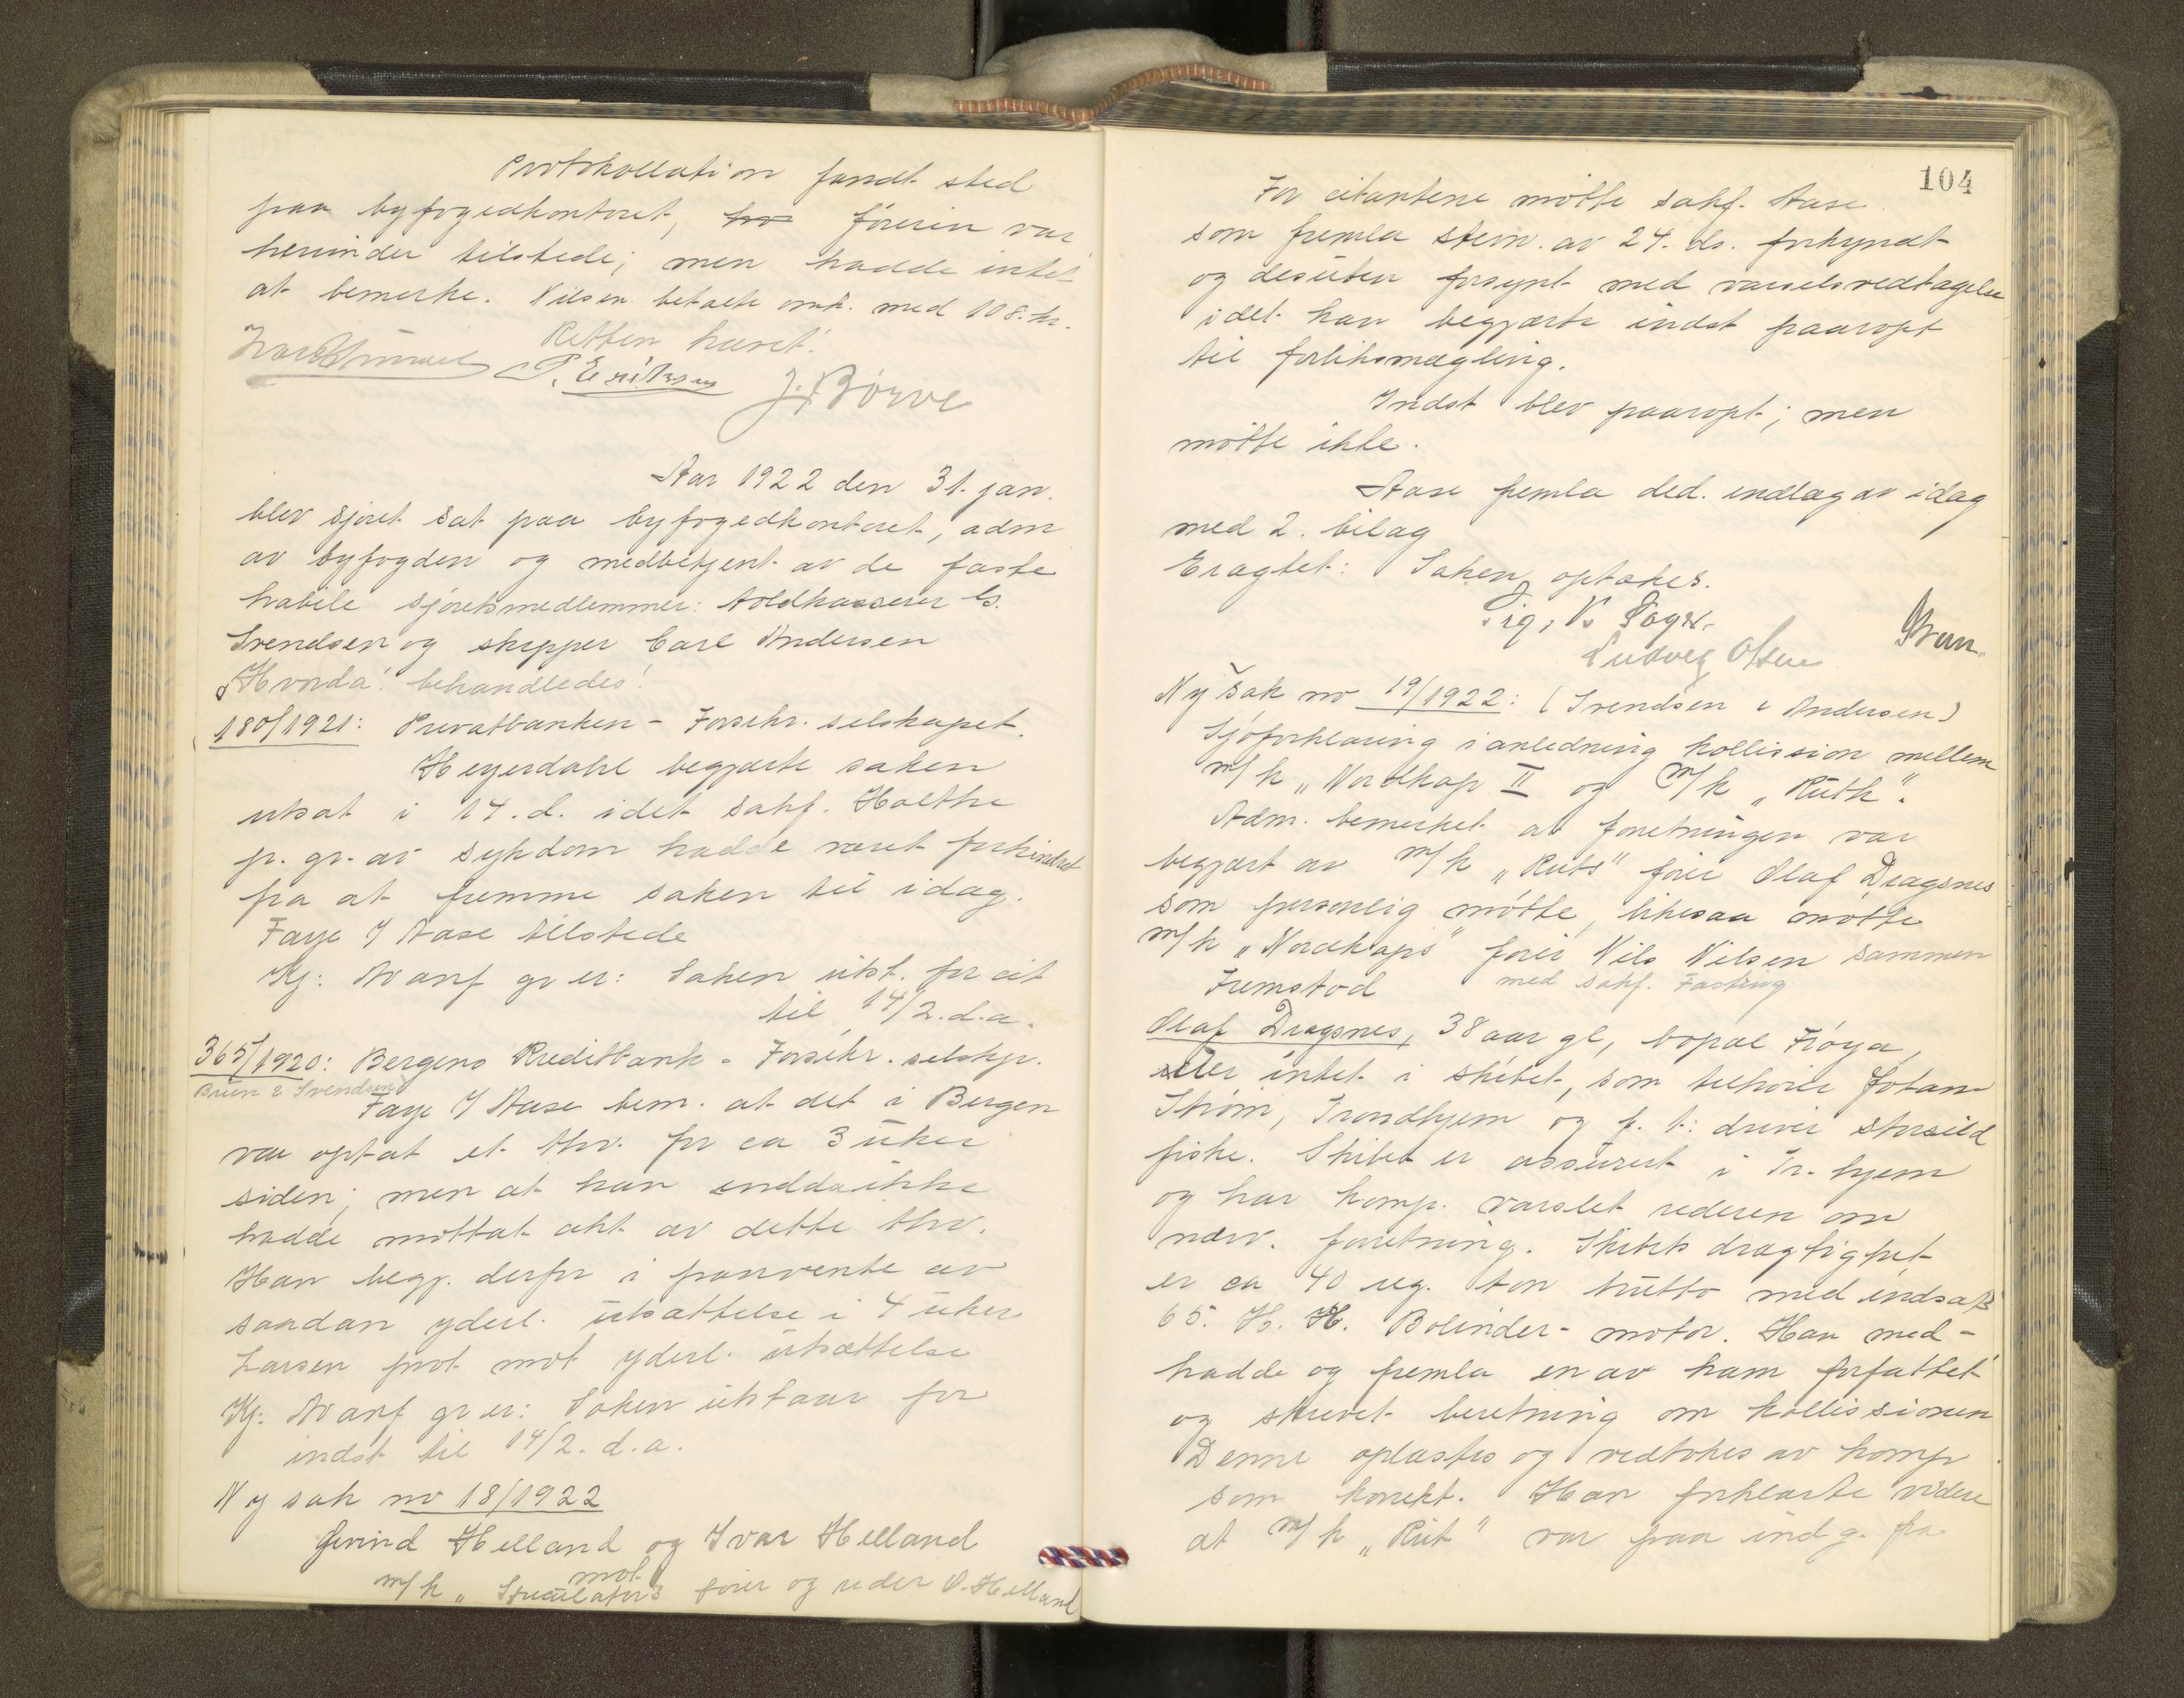 Protokollation fandt sted
paa byfogedkontoret, hvo föreren var
herunder tilstede; men hadde intet
at bemerke. Nilsen betalte omk. med 108 kr.
Retten hævet.
P. Eriksen J. Börve
Aar 1922 den 31. jan.
blev sjöret sat paa byfogedkontoret, adm
av byfogden og medbetjent av de faste
habile sjöretsmedlemmer: toldkasserer G.
Svendsen og skipper Carl Andersen
„Hvorda" behandledes:
180/1921: Privatbanken - Forsikr. selskapet.
Heyerdahl begjærte saken
utsat i 14. d. idet sakf. Holthe
p. gr. av sykdom hadde været forhindret
fra at fremme saken til idag.
Faye f Aase tilstede
Kj: Av anf gr er: Saken utst. for cit
til 14/2. d.a.
365/1920: Bergens Kreditbank - Forsikr. selskp.
Bruun & Svendsen
Faye f Aase bem. at det i Bergen
var optat et thv. for ca 3 uker
siden; men at han endda ikke
hadde mottat akt av dette thv.
Han begj. derfor i paavente av
saadan yderl. utsættelse i 4 uker
Larsen prot mot yderl. utsættelse
Kj: Av anf gr er: Saken utstaar for
indst til 14/2. d.a.
Ny sak no 18/1922
Eivind Helland og Ivar Helland
mot
m/k „Speculators förer og reder O. Helland
104
For citantene mötte sakf. Aase
som fremla stevn. av 24. ds. forkyndt
og desuten forsynt med varselsvedtagelse
idet han begjærte indst paaropt
til forliksmægling.
Indst blev paaropt; men
mötte ikke.
Aase fremla ded. indlæg av idag
med 2. bilag
Eragtet: Saken optakes.
Ludvig Olsen
Bruun
Ny sak no 19/1922: (Svendsen & Andersen)
Sjöforklaring i anledning kollission mellem
m/k „Nordkap II og m/k „Ruth".
Adm. bemerket at forretningen var
begjært av m/k „Ruts" förer Olaf Dragsnes
som personlig mötte, likesaa mötte
m/k „Nordkaps" förer Nils Nilsen sammen
med sakf. Fasting
Fremstod
Olaf Dragsnes, 38 aar gl, bopæl Fröya,
eier intet i skibet, som tilhörer Johan
Ström, Trondhjem og p. t. driver storsild
fiske. Skibet er assurert i Tr. hjem
og har komp. varslet rederen om
nærv. forretning. Skibets drægtighet
er ca 40 reg. ton brutto med indsat
65. H. K. Bolinder-motor. Han med-
hadde og fremla en av ham forfattet
og skrevet beretning om kollissionen
Denne oplæstes og vedtokes av komp
som korrekt. Han forklarte videre
at m/k „Rut" var paa indg. fra